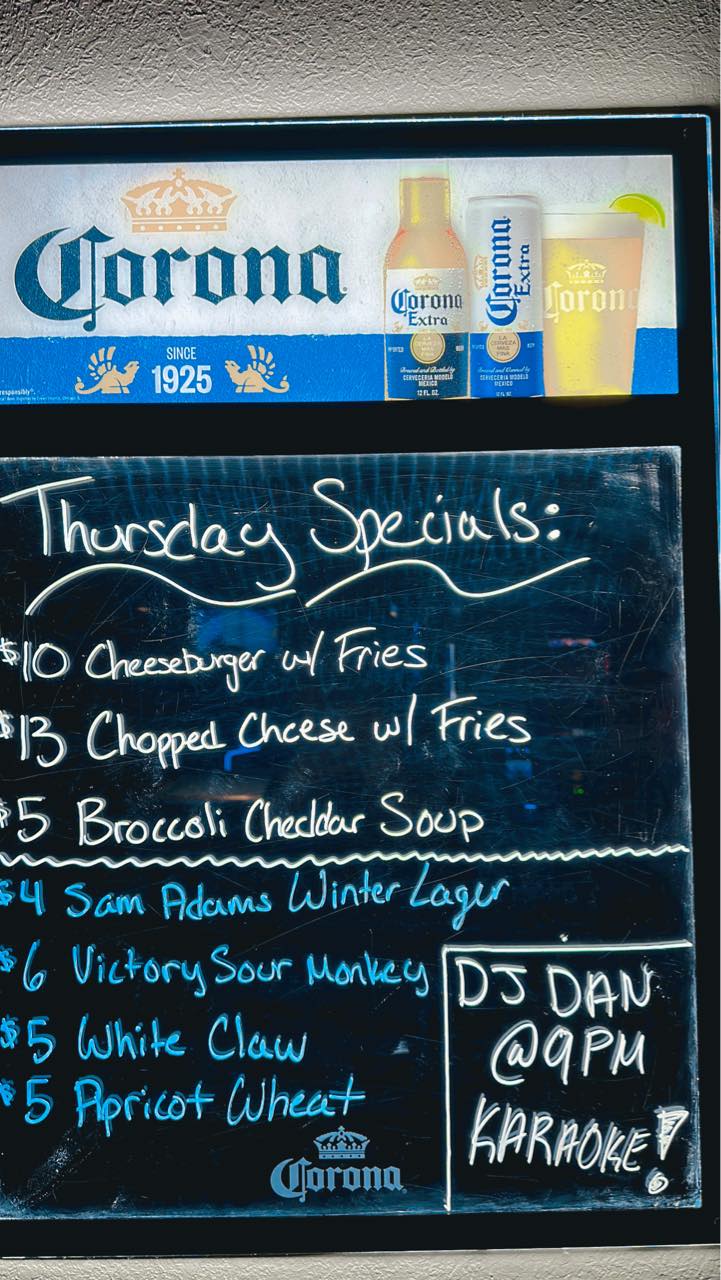 Corona
SINCE
1925
responsibly®.
Corona
Extra
LA
CERVEZA
MAS
FINA
Brewed and Bottled by
CERVECERIA MODELO
MEXICO
12 FL. OZ.
Corona
Extra
LA
CERVEZA
MAS
FINA
Brewed and Canned by
CERVECERIA MODELO
MEXICO
12 FL. OZ.
Corona
Thursday Specials:
$10 Cheeseburger w/ Fries
$13 Chopped Cheese w/ Fries
$5 Broccoli Cheddar Soup
$4 Sam Adams Winter Lager
$6 Victory Sour Monkey
$5 White Claw
$5 Apricot Wheat
DJ DAN
@9PM
KARAOKE!
Corona